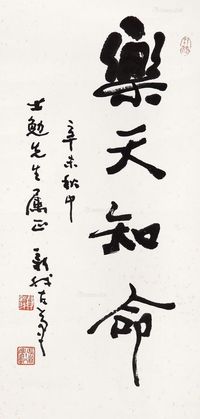 樂天知命
辛未秋中
士勉先生属正